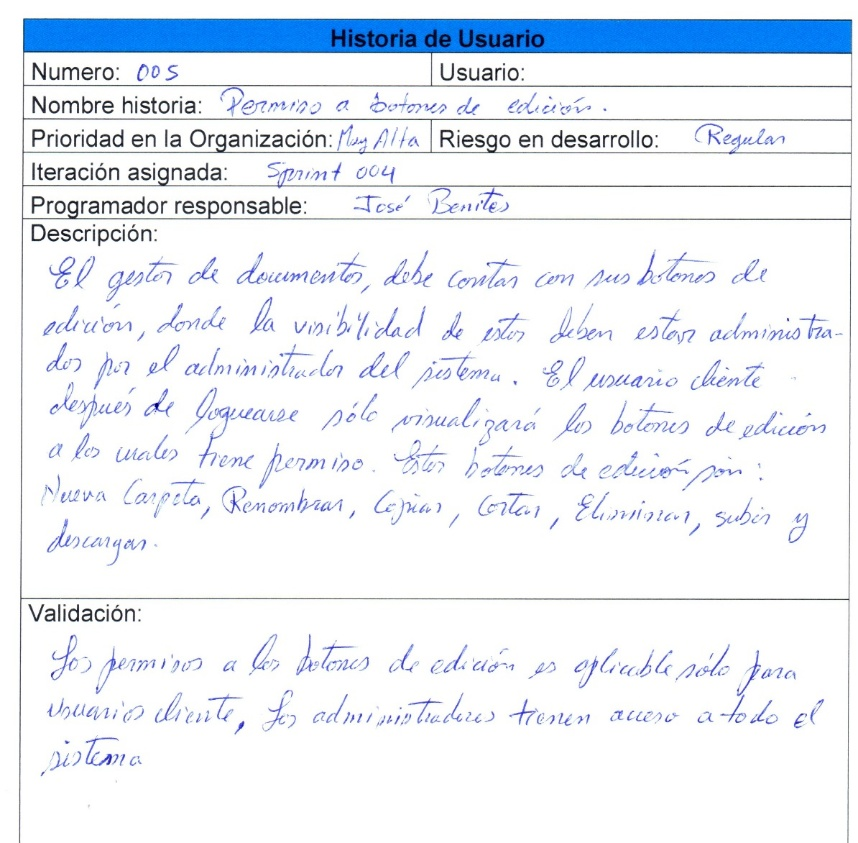 Historia de Usuario
Numero: 005 Usuario:
Nombre historia: Permiso a botones de edición.
Prioridad en la Organización: Muy Alta Riesgo en desarrollo: Regular
Iteración asignada: Sprint 004
Programador responsable: José Benites
Descripción:
El gestor de documentos, debe contar con sus botones de
edición, donde la visibilidad de estos deben estar administra-
dos por el administrador del sistema. El usuario cliente
después de loguearse sólo visualizará los botones de edición
a los cuales tiene permiso. Estos botones de edición son:
Nueva Carpeta, Renombrar, Copiar, Cortar, Eliminar, subir y
descargar.
Validación:
Los permisos a los botones de edición es aplicable sólo para
usuarios cliente, Los administradores tienen acceso a todo el
sistema